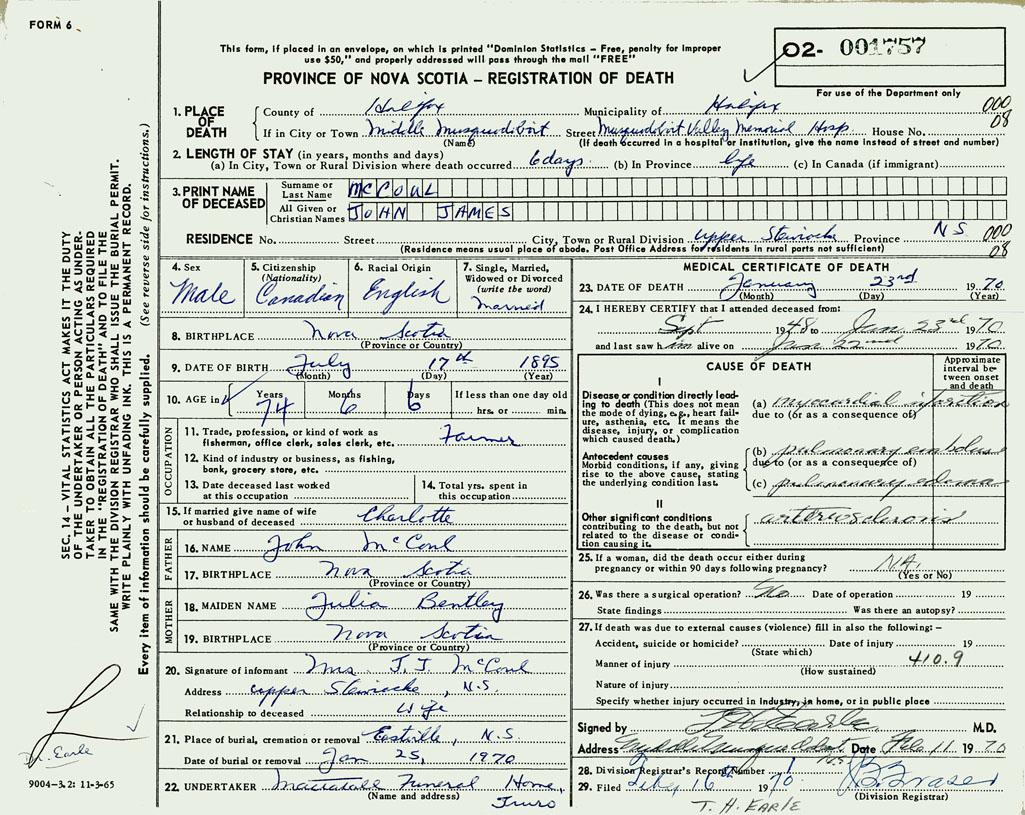 FORM 6
This form, if placed in an envelope, on which is printed "Dominion Statistics – Free, penalty for improper
use $50," and properly addressed will pass through the mail "FREE"
PROVINCE OF NOVA SCOTIA – REGISTRATION OF DEATH
O2- 001757
For use of the Department only
1. PLACE OF DEATH
County of Halifax Municipality of Halifax 000
If in City or Town Middle Musquodoboit Street Musquodoboit Valley Memorial Hosp. House No. 08
(Name) (If death occurred in a hospital or institution, give the name instead of street and number)
2. LENGTH OF STAY (in years, months and days)
(a) In City, Town or Rural Division where death occurred 6 days (b) In Province life (c) In Canada (if immigrant)
3. PRINT NAME OF DECEASED
Surname or Last Name McCOUL
All Given or Christian Names JOHN JAMES
RESIDENCE No. Street City, Town or Rural Division Upper Stewiacke Province N.S. 000
(Residence means usual place of abode. Post Office Address for residents in rural parts not sufficient) 08
4. Sex Male
5. Citizenship (Nationality) Canadian
6. Racial Origin English
7. Single, Married, Widowed or Divorced (write the word) married
8. BIRTHPLACE Nova Scotia
(Province or Country)
9. DATE OF BIRTH July 17th 1895
(Month) (Day) (Year)
10. AGE in Years 74 Months 6 Days 6 If less than one day old hrs. or min.
OCCUPATION
11. Trade, profession, or kind of work as
fisherman, office clerk, sales clerk, etc. Farmer
12. Kind of industry or business, as fishing,
bank, grocery store, etc.
13. Date deceased last worked at this occupation
14. Total yrs. spent in this occupation
15. If married give name of wife
or husband of deceased Charlotte
FATHER
16. NAME John McCoul
17. BIRTHPLACE Nova Scotia
(Province or Country)
MOTHER
18. MAIDEN NAME Julia Bentley
19. BIRTHPLACE Nova Scotia
(Province or Country)
20. Signature of informant Mrs. J. J. McCoul
Address Upper Stewiacke, N.S.
Relationship to deceased Wife
21. Place of burial, cremation or removal Eastville, N.S.
Date of burial or removal Jan 25, 1970
22. UNDERTAKER Mattatall Funeral Home,
(Name and address) Truro
MEDICAL CERTIFICATE OF DEATH
23. DATE OF DEATH January 23rd 1970
(Month) (Day) (Year)
24. I HEREBY CERTIFY that I attended deceased from:
Sept 1948 to Jan. 23rd 1970
and last saw him alive on Jan 22nd 1970
CAUSE OF DEATH
Approximate interval between onset and death
I
Disease or condition directly leading to death (This does not mean
the mode of dying, e.g., heart failure, asthenia, etc. It means the
disease, injury, or complication which caused death.)
(a) myocardial infarction
due to (or as a consequence of)
Antecedent causes
Morbid conditions, if any, giving
rise to the above cause, stating
the underlying condition last.
(b) pulmonary embolus
due to (or as a consequence of)
(c) pulmonary edema
II
Other significant conditions
contributing to the death, but not
related to the disease or condition causing it.
arteriosclerosis
25. If a woman, did the death occur either during
pregnancy or within 90 days following pregnancy? N.A.
(Yes or No)
26. Was there a surgical operation? No Date of operation 19
State findings Was there an autopsy?
27. If death was due to external causes (violence) fill in also the following: –
Accident, suicide or homicide? Date of injury 19
(State which)
Manner of injury 410.9
(How sustained)
Nature of injury
Specify whether injury occurred in industry, in home, or in public place
Signed by T H Earle M.D.
Address Middle Musquodoboit N.S. Date Feb 11 1970
28. Division Registrar's Record Number 1
29. Filed Feby 16th 1970 Fraser
(Division Registrar)
T. H. EARLE
SEC. 14 – VITAL STATISTICS ACT MAKES IT THE DUTY
OF THE UNDERTAKER OR PERSON ACTING AS UNDERTAKER TO OBTAIN ALL THE PARTICULARS REQUIRED
IN THE "REGISTRATION OF DEATH" AND TO FILE THE
SAME WITH THE DIVISION REGISTRAR WHO SHALL ISSUE THE BURIAL PERMIT.
WRITE PLAINLY WITH UNFADING INK. THIS IS A PERMANENT RECORD.
Every item of information should be carefully supplied. (See reverse side for instructions.)
Dr. Earle
9004-3.2: 11-3-65